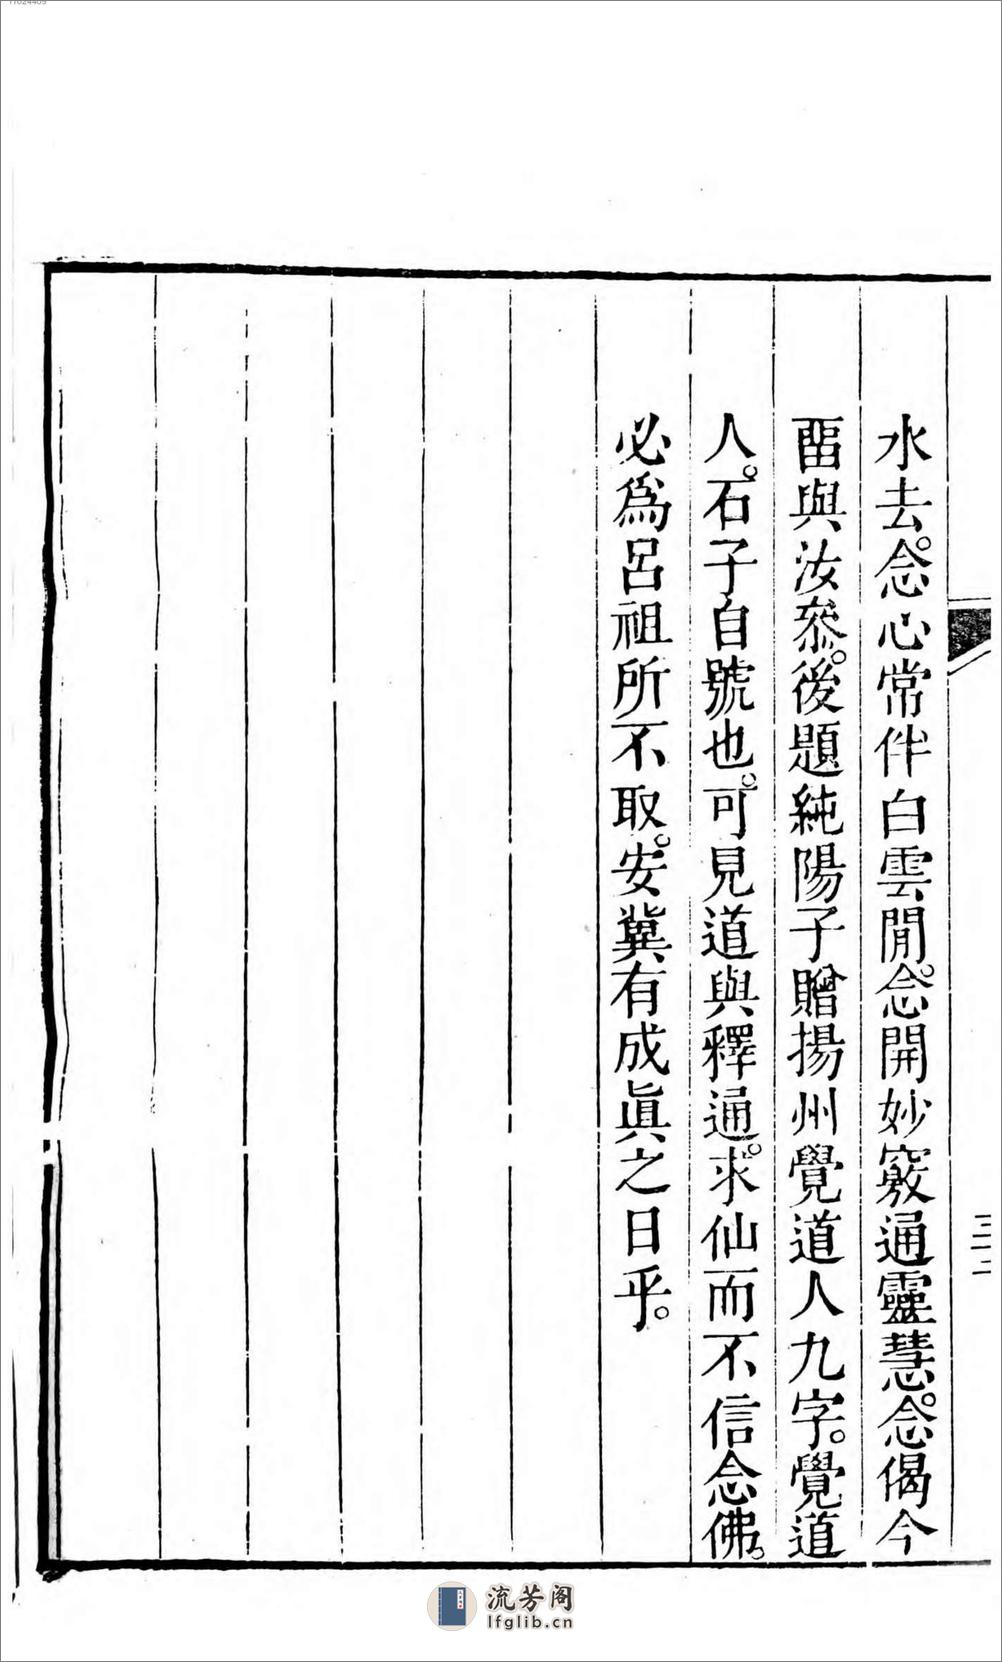 水去。念心常伴白雲閒。念開妙竅通靈慧。念偈今
畱與汝叅。後題純陽子贈揚州覺道人九字。覺道
人。石子自號也。可見道與釋通。求仙而不信念佛。
必爲呂祖所不取。安冀有成眞之日乎。
三十二
流芳阁
lfglib.cn